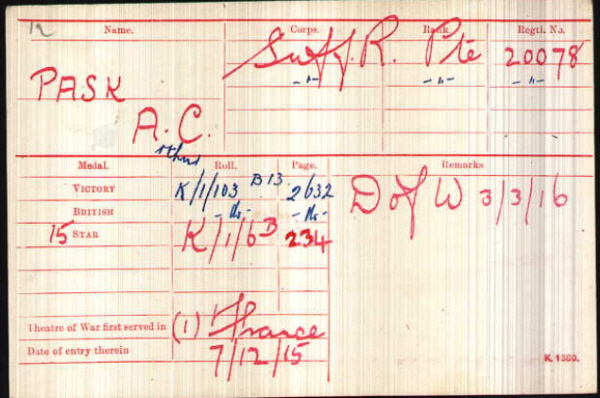 12 Name. Corps. Rank. Regtl. No.
Suff. R. Pte 20078
PASK -"- -"- -"-
A. C.
Medal. Roll. Page. Remarks
VICTORY K/1/103 B13 2632 D of W 3/3/16
BRITISH -do- -do-
15 STAR K/1/6 B 234
Theatre of War first served in (1) France
Date of entry therein 7/12/15
K. 1380.